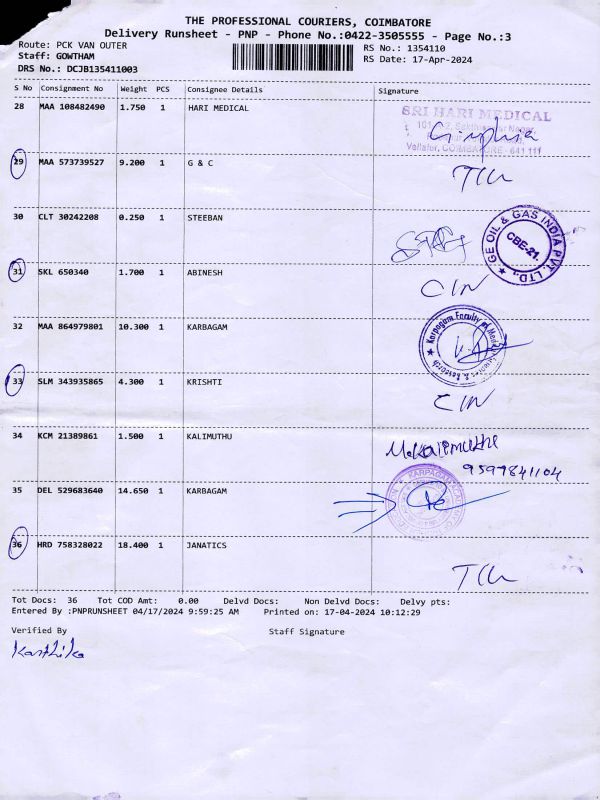 THE PROFESSIONAL COURIERS, COIMBATORE
Delivery Runsheet - PNP - Phone No.:0422-3505555 - Page No.:3
Route: PCK VAN OUTER RS No.: 1354110
Staff: GOWTHAM RS Date: 17-Apr-2024
DRS No.: DCJB135411003
S No Consignment No Weight PCS Consignee Details Signature
28 MAA 108482490 1.750 1 HARI MEDICAL
SRI HARI MEDICAL
COIMBATORE - 641 111
29 MAA 573739527 9.200 1 G & C
30 CLT 30242208 0.250 1 STEEBAN
GE OIL & GAS INDIA PVT. LTD.,
CBE-21.
31 SKL 650340 1.700 1 ABINESH
CIN
32 MAA 864979801 10.300 1 KARBAGAM
Karpagam Faculty of
33 SLM 343935865 4.300 1 KRISHTI
CIN
34 KCM 21389861 1.500 1 KALIMUTHU
M.Kalimuthu
9597841104
35 DEL 529683640 14.650 1 KARBAGAM
KARPAGAM
36 HRD 758328022 18.400 1 JANATICS
Tot Docs: 36 Tot COD Amt: 0.00 Delvd Docs: Non Delvd Docs: Delvy pts:
Entered By :PNPRUNSHEET 04/17/2024 9:59:25 AM Printed on: 17-04-2024 10:12:29
Verified By Staff Signature
Karthika